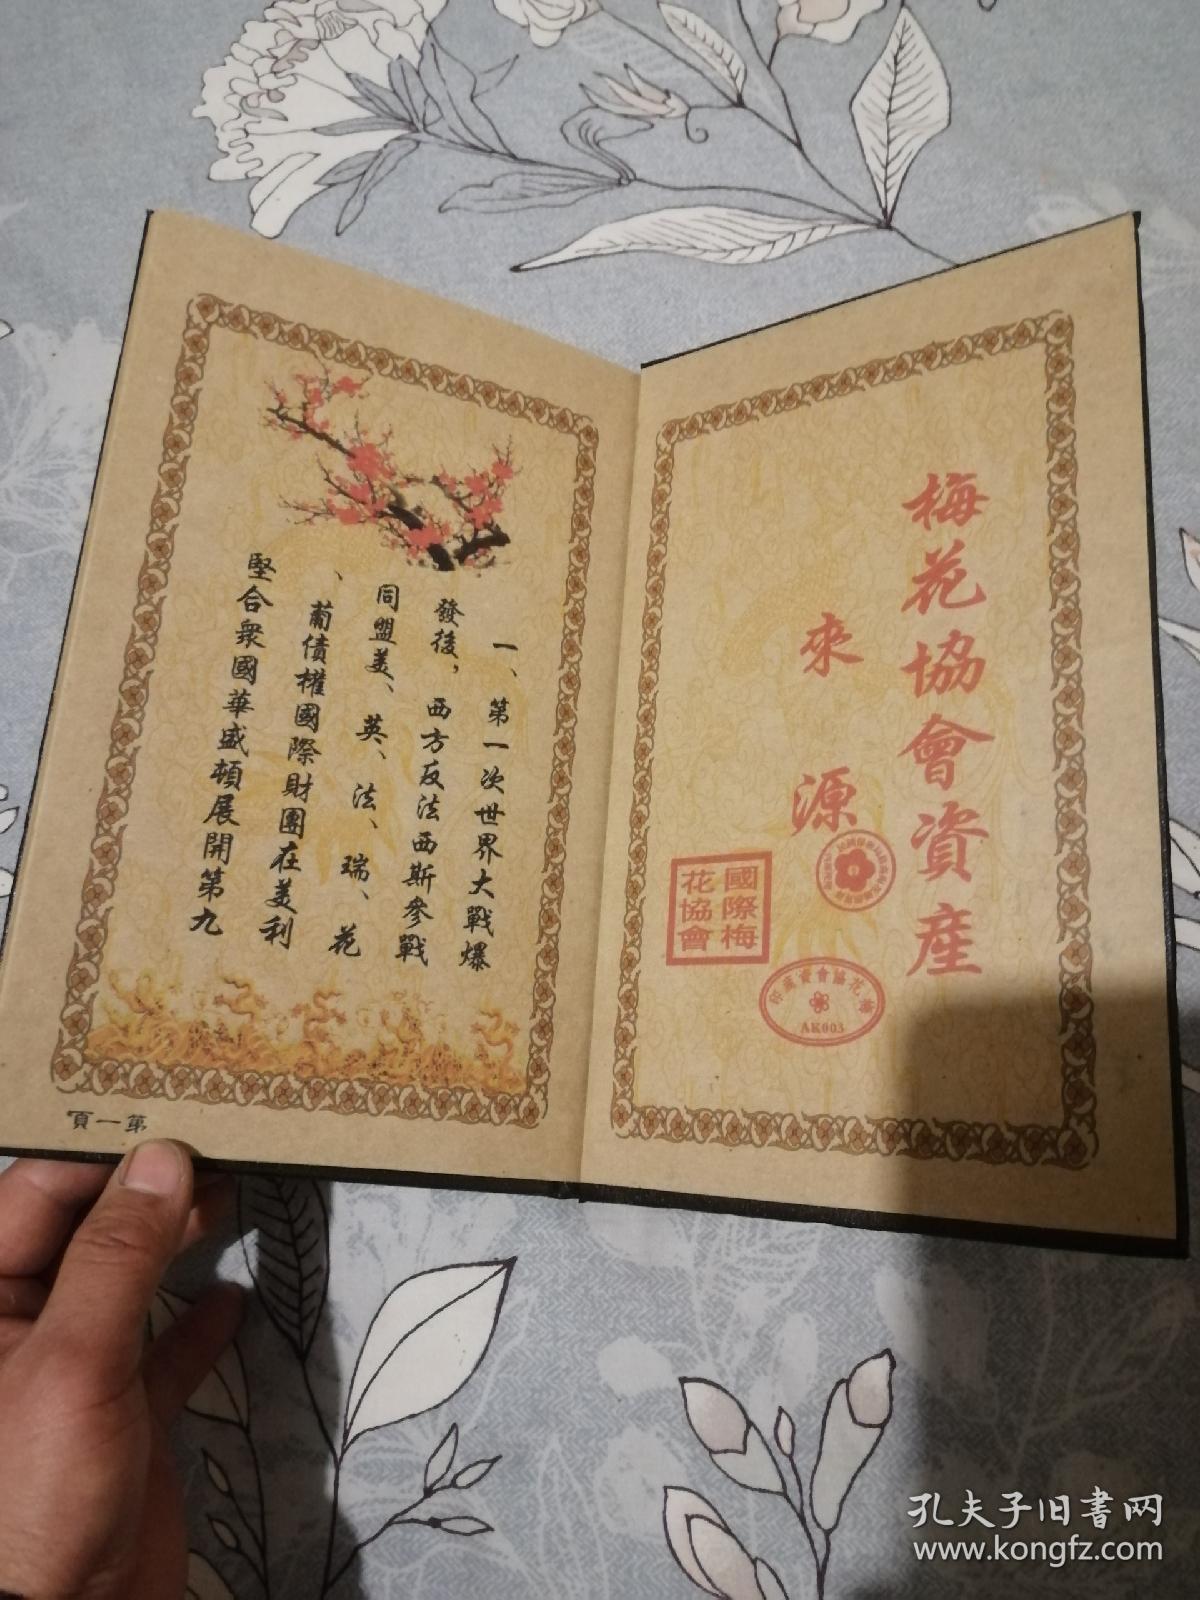 梅花協會資産
來源
國際梅
花協會
梅花協會資産
AK003
一、第一次世界大戰爆
發後,西方反法西斯參戰
同盟美、英、法、瑞、花
、葡債權國際財團在美利
堅合衆國華盛頓展開第九
第一頁
孔夫子旧書网
www.kongfz.com